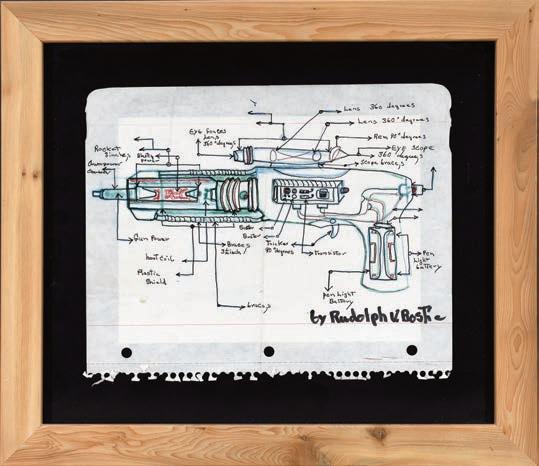 Lens 360 degrees
Eye forces
Lens
360°degrees
Lens 360°degrees
Rem 90°degrees
Eye scope
360°degrees
Scope braces
Rocket
Gun Power
heat Coil
Plastic
Shield
Braces
3 inch/
braces
Buster
Buster
Tricker
90 degrees
Transistor
Pen
Light
Battery
Pen Light
Battery
by Rudolph V. Bostic